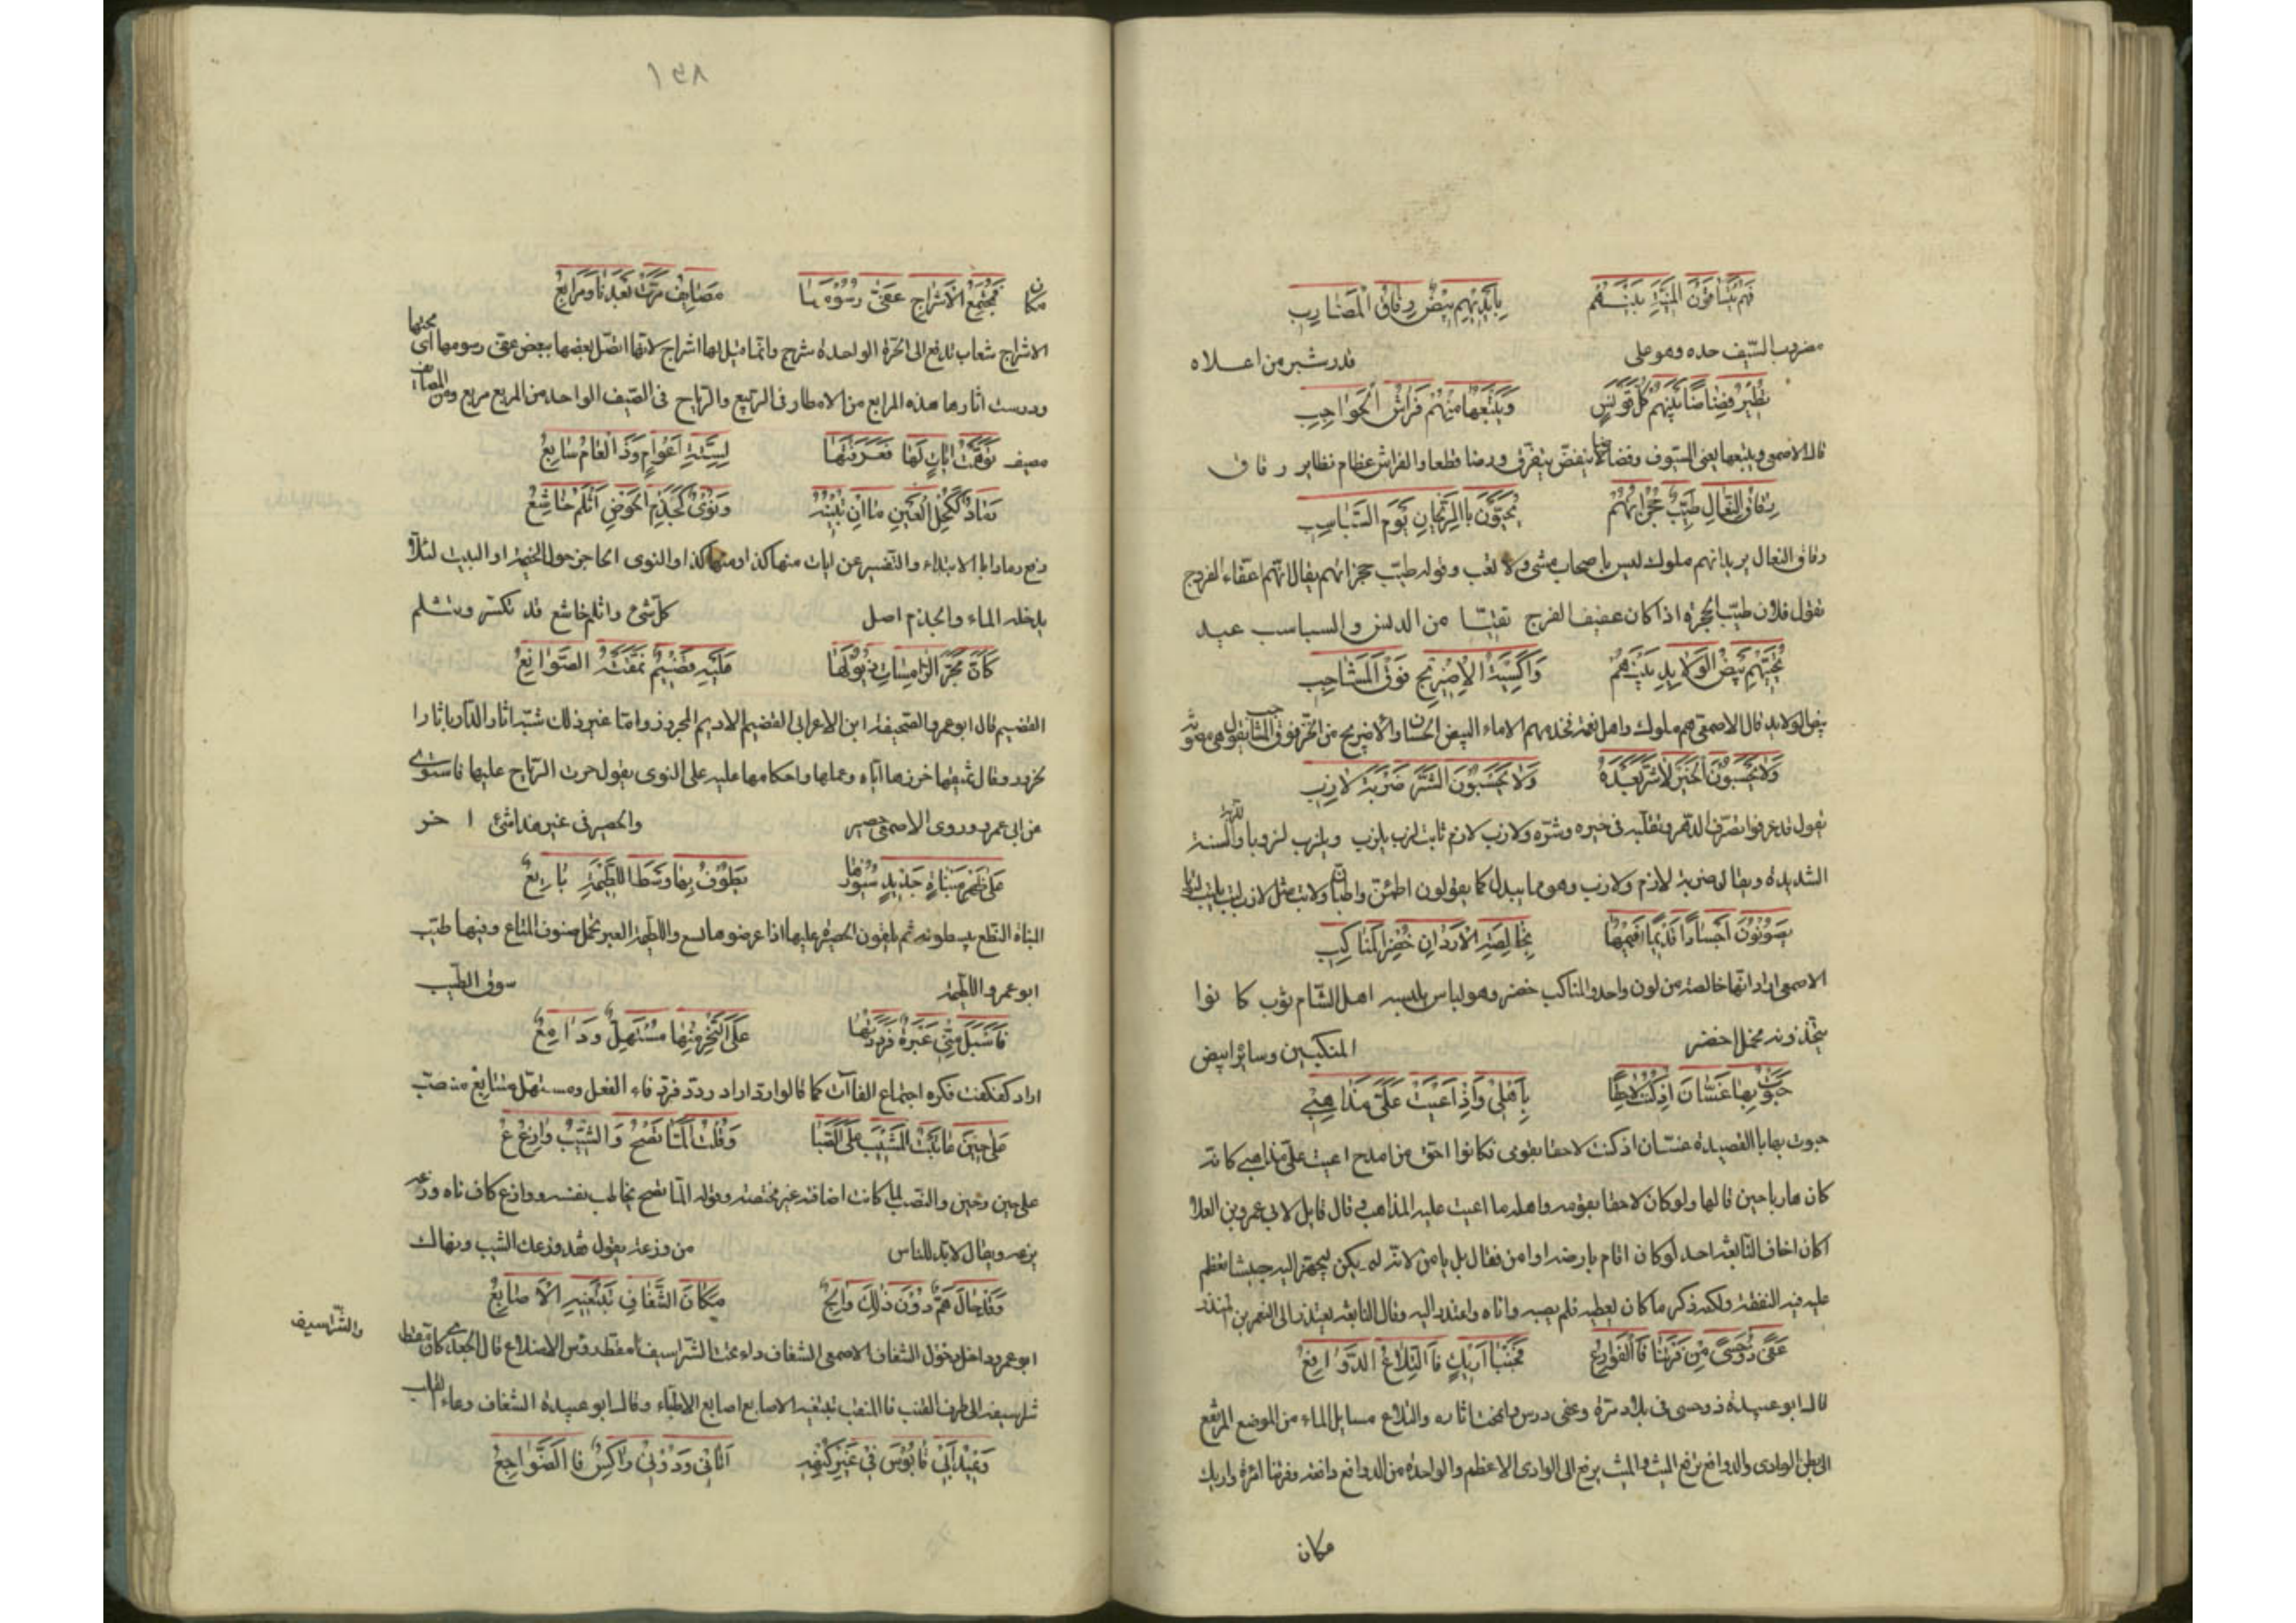 فَهُمْ يَتَسَاقَوْنَ المَنِيَّةَ بَيْنَهُمْ بِأَيْدِيهِمْ بِيضٌ رِقَاقُ المَضَارِبِ
مضروب السّيف حده وهو على قدر شبر من اعلاه
يُطِيرُ فُضَاضًا بَيْنَهُمْ كُلُّ قَوْنَسٍ وَيَتْبَعُهَا مِنْهُمْ فَرَاشُ الحَوَاجِبِ
قال الاصمعى ويتبعها يعنى السيوف وفضاضا ينفضّ يتفرق ورضا قطعا والفراش عظام نظاير رقاق
رِقَاقُ النِّعَالِ طَيِّبٌ حُجُزَاتُهُمْ يُحَيَّوْنَ بِالرَّيْحَانِ يَوْمَ السَّبَاسِبِ
رقاق النعال يريد انهم ملوك ليس باصحاب مشى ولا تعب وقوله طيّب حجزاتهم يقال انهم اعفاء الفروج
تقول فلان طيّب الحجزة اذا كان عفيف الفرج نقيّا من الدنس والسباسب عيد
تُحَيِّيهِمْ بِيضُ الوَلَايِدِ بَيْنَهُمْ وَأَكْسِيَةُ الإِضْرِيجِ فَوْقَ المَشَاجِبِ
بيض الولايد قال الاصمعى هم ملوك واهل نعمة تخدمهم الاماء البيض الحسان والاضريج من الخز فوق المشاجب يقول هى مصونة
وَلَا يَحْسَبُونَ الخَيْرَ لَا شَرَّ بَعْدَهُ وَلَا يَحْسَبُونَ الشَّرَّ ضَرْبَةَ لَازِبِ
يقول قد عرفوا تصرف الدهر وتقلبه فى خيره وشرّه ولازب لازم ثابت لزب يلزب ويلزب لزوبا والسنة
الشديدة ويقال ضربة لازم ولازب وهو مما يبدل كما يقولون اطمئن واطبأن ولاتب مثل لازب
يَصُونُونَ أَجْسَادًا قَدِيمًا نَعِيمُهَا بِخَالِصَةِ الأَرْدَانِ خُضْرِ المَنَاكِبِ
الاصمعى اراد انها خالصة من لون واحد والمناكب خضر وهو لباس يلبسه اهل الشّام ثوب كانوا
يتخذونه مخمل اخضر المنكبين وسائره ابيض
حَبَوْتُ بِهَا غَسَّانَ إِذْ كُنْتُ لَاحِقًا بِأَهْلِي وَإِذْ أَعْيَتْ عَلَيَّ مَذَاهِبِي
حبوت بها بالقصيدة غسّان اذ كنت لاحقا بقومى فكانوا احق من امدح اعيت علىّ مذاهبى كانه
كان هاربا حين قالها ولو كان لاحقا بقومه واهله ما اعيت عليه المذاهب قال قايل لابى عمرو بن العلا
اكان اخاف النابغة احد لو كان اقام بارضه او امن فقال بل يامن لانه لم يكن ليجهز اليه جيشا تعظم
عليه فيه النفقة ولكنه ذكر ما كان يعطيه فلم يصبر واتاه واعتذر اليه وقال النابغة يعتذر الى النعمن بن المنذر
عَفَى ذُو حُسًى مِنْ فَرْتَنَا فَالْفَوَارِعُ فَجَنْبَا أَرِيكٍ فَالتِّلَاعُ الدَّوَافِعُ
قال ابو عبيدة ذو حسى فى بلاد مرة وعفى درس وامحت اثاره والتلاع مسايل الماء من الموضع المرتفع
الى بطن الوادى والدوافع تدفع الميث والميث يدفع الى الوادى الاعظم والواحدة من الدوافع دافعة وفرتنا امرة واريك
مكان
١٣٨
مكان فَمُجْتَمَعُ الأَشْرَاجِ عَفَّى رُسُومَهَا مَصَايِفُ مَرَّتْ بَعْدَنَا وَمَرَابِعُ
الاشراج شعاب تدفع الى الحرة الواحدة شرج وانما قيل لها اشراج لانها اتصل بعضها ببعض عفى رسومها اى محتها
ودرست اثارها هذه المرابع من الامطار فى الربيع والرياح فى الصّيف الواحد من المربع مربع ومن المصايف
مصيف تَوَهَّمْتُ آيَاتٍ لَهَا فَعَرَفْتُهَا لِسِتَّةِ أَعْوَامٍ وَذَا العَامُ سَابِعُ
رَمَادٌ كَكُحْلِ العَيْنِ مَا إِنْ تُبِينُهُ وَنُؤْيٌ كَجِذْمِ الحَوْضِ أَثْلَمُ خَاشِعُ
رفع رمادا بالابتداء والتفسير عن ايات منها كذا ومنها كذا والنوى الحاجز حول الخيمة او البيت لئلا
يدخله الماء والجذم اصل كلّ شئ واثلم خاشع قد تكسّر وتثلم
كَأَنَّ مَجَرَّ الرَّامِسَاتِ ذُيُولَهَا عَلَيْهِ قَضِيمٌ نَمَّقَتْهُ الصَّوَانِعُ
القضيم قال ابو عمرو الصّحيفة ابن الاعرابى القضيم الاديم المجرود واما غير ذلك شبّه اثار الدار باثار
من ابى عمرو وروى الاصمعى حصير والحصير فى غير هذا شئ اخر
عَلَى ظَهْرِ مِبْنَاةٍ جَدِيدٍ سُيُورُهَا يَطُوفُ بِهَا وَسْطَ اللَّطِيمَةِ بَايِعُ
المبناة النطع يبسطونه ثم يلقون الحصير عليها اذا عرضوها للبيع واللطيمة العير تحمل صنوف المتاع وفيها طيب
ابو عمرو اللطيمة سوق الطّيب
فَأَسْبَلَ مِنِّي عَبْرَةٌ فَرَدَدْتُهَا عَلَى النَّحْرِ مِنْهَا مُسْتَهِلٌّ وَدَامِعُ
اراد كفكفت فكره اجتماع الفاآت كما قالوا اراد ردد فرد فاء الفعل ومستهل متتابع منصبّ
عَلَى حِينَ عَاتَبْتُ المَشِيبَ عَلَى الصِّبَا وَقُلْتُ أَلَمَّا تَصْحُ وَالشَّيْبُ وَازِعُ
على حين وحين والنصب لما كانت اضافته غير مختصة وقوله المّا تصح يخاطب نفسه ووازع كاف ناه وزعه
يزعه ويقال لا بد للناس من وزعة يقول قد وزعك الشيب ونهاك
وَقَدْ حَالَ هَمٌّ دُونَ ذَلِكَ وَالِجٌ مَكَانَ الشَّغَافِ تَبْتَغِيهِ الأَصَابِعُ
ابو عمرو داخل دخول الشغاف الاصمعى الشغاف داء تحت الشّراسيف
والشّراسيف
شرسيفه الى طرف القنب فالمنقب تبتغيه الاصابع اصابع الاطباء وقال ابو عبيدة الشغاف وعاء القلب
وَعِيدُ أَبِي قَابُوسَ فِي غَيْرِ كُنْهِهِ أَتَانِي وَدُونِي رَاكِسٌ فَالضَّوَاجِعُ